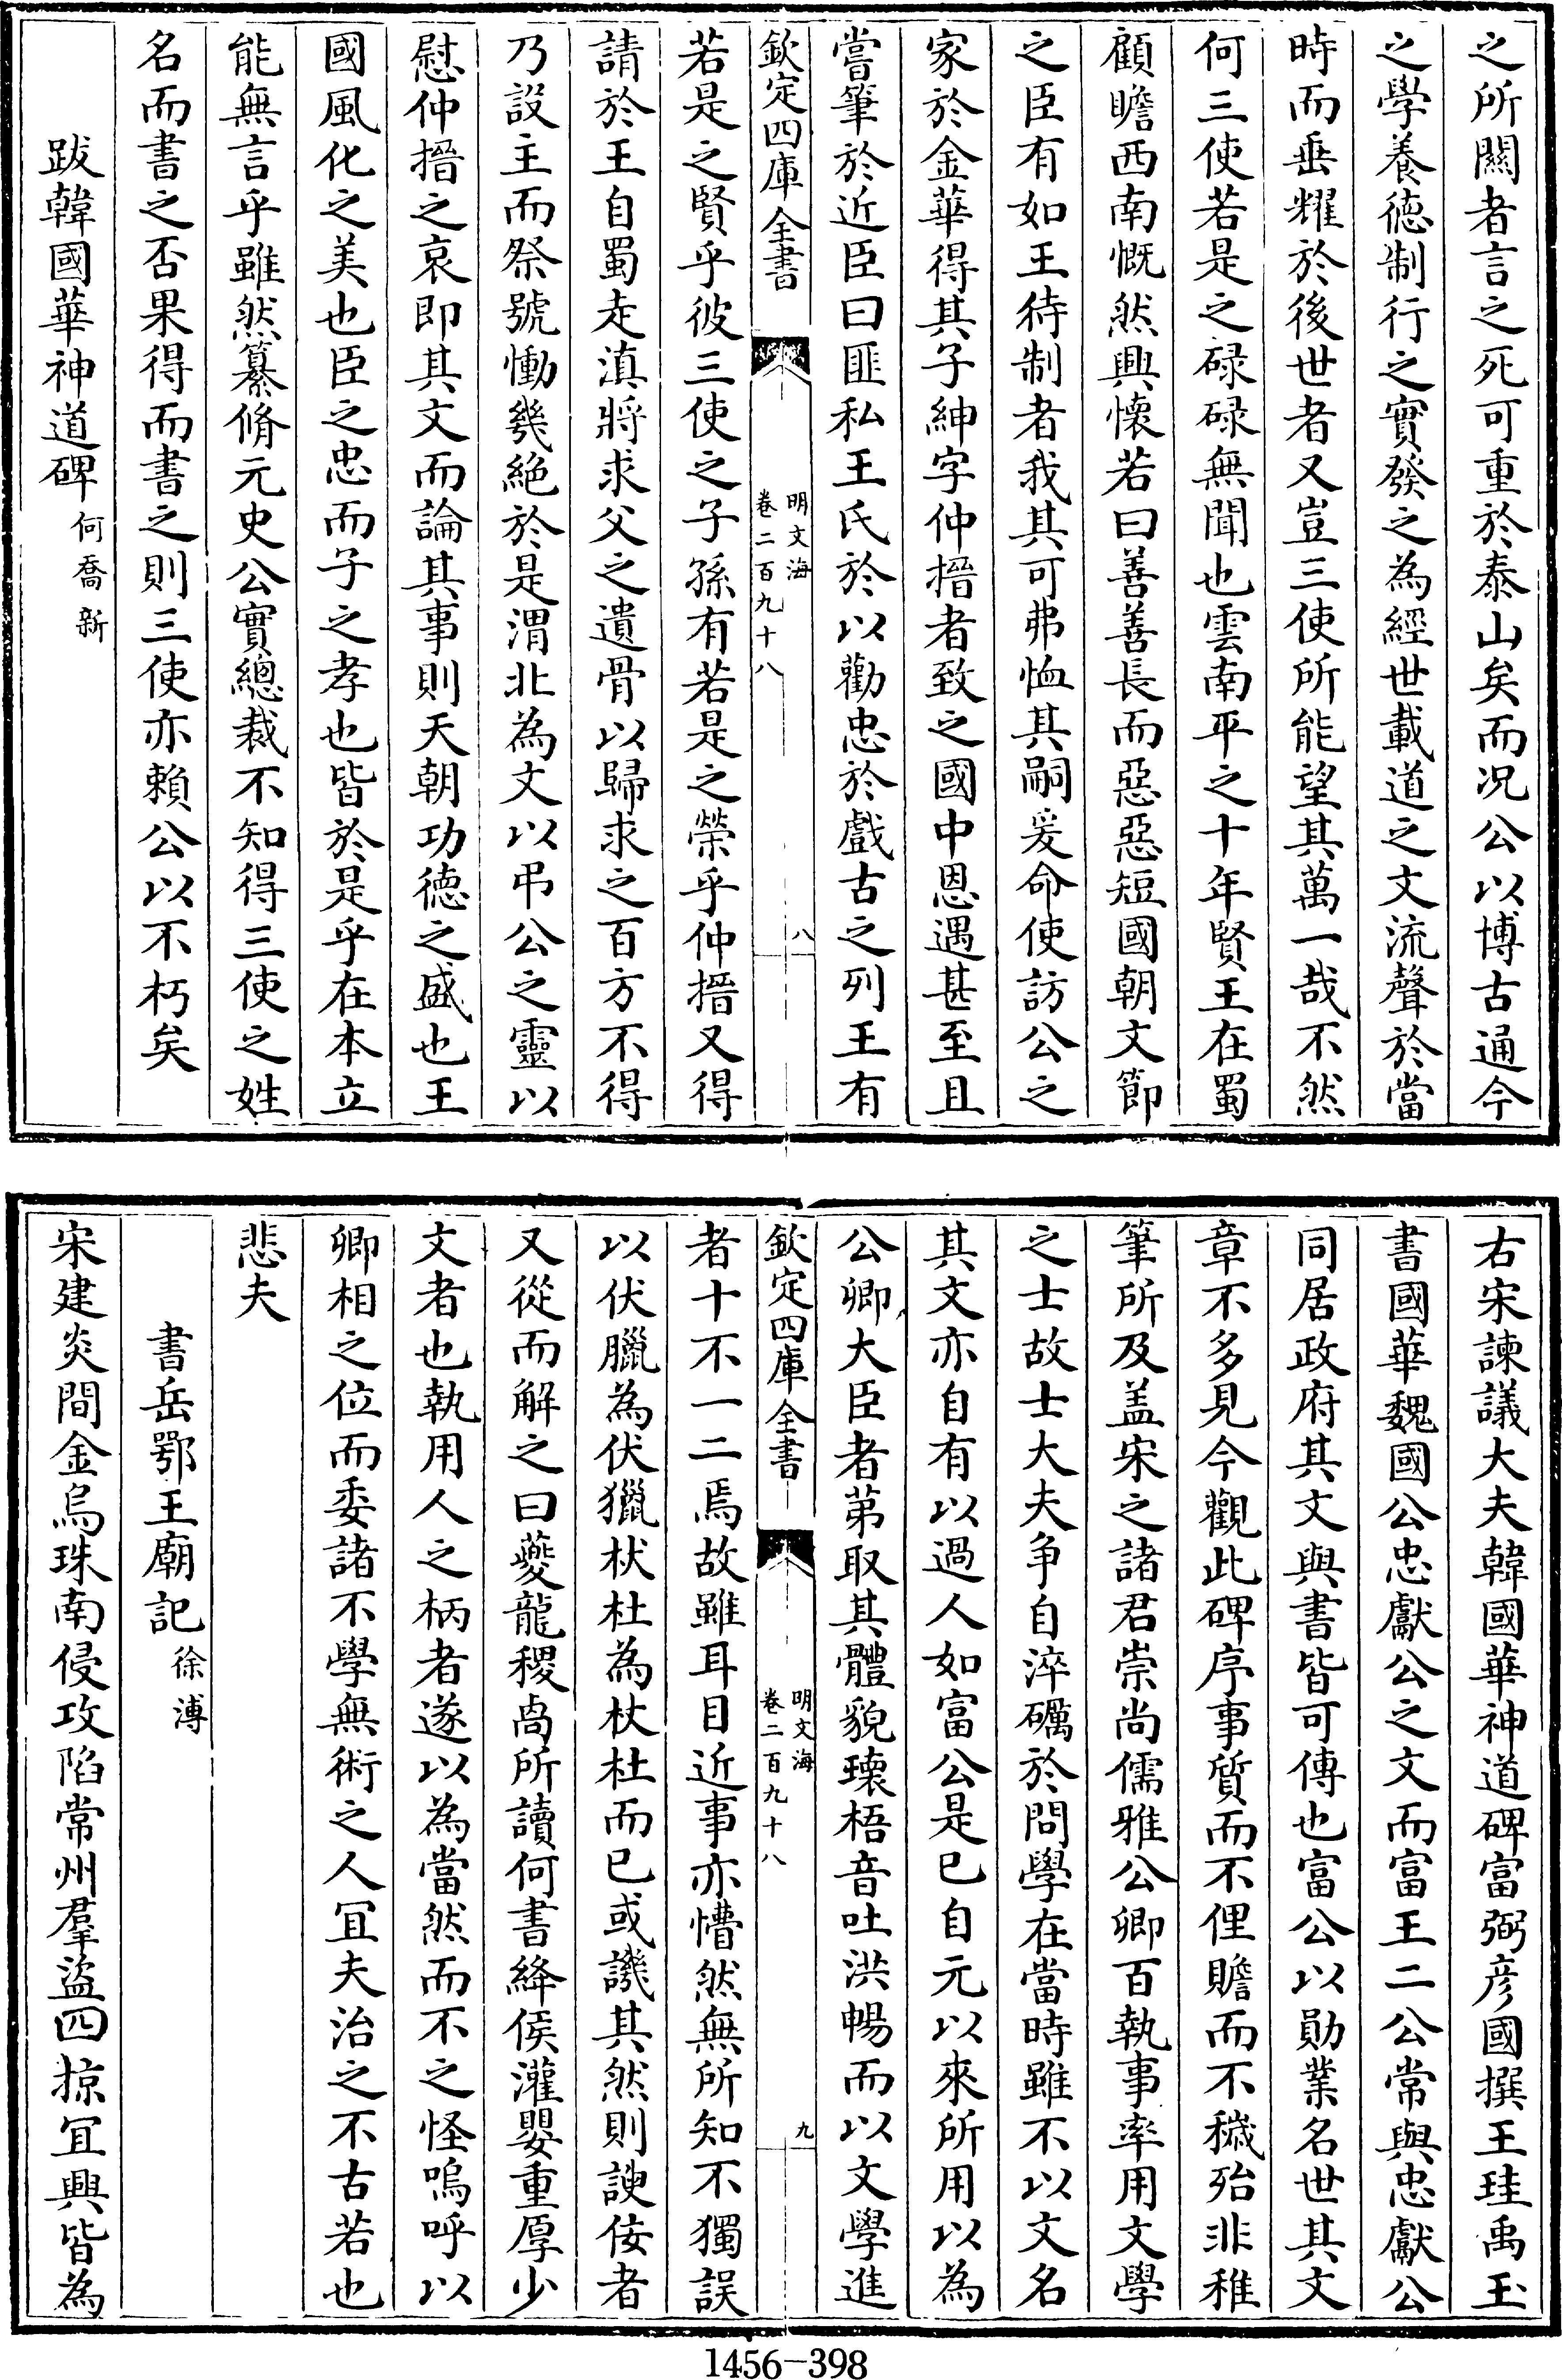 之所闗者言之死可重於泰山矣而况公以博古通今
之學養徳制行之實發之為經世載道之文流聲於當
時而垂耀於後世者又豈三使所能望其萬一哉不然
何三使若是之碌碌無聞也雲南平之十年賢王在蜀
顧瞻西南慨然興懷若曰善善長而惡惡短國朝文節
之臣有如王待制者我其可弗恤其嗣爰命使訪公之
家於金華得其子紳字仲搢者致之國中恩遇甚至且
嘗筆於近臣曰匪私王氏於以勸忠於戲古之列王有
欽定四庫全書
明文海
卷二百九十八
八
若是之賢乎彼三使之子孫有若是之榮乎仲搢又得
請於王自蜀走滇將求父之遺骨以歸求之百方不得
乃設主而祭號慟幾絶於是渭北為文以弔公之靈以
慰仲搢之哀即其文而論其事則天朝功德之盛也王
國風化之美也臣之忠而子之孝也皆於是乎在本立
能無言乎雖然纂脩元史公實總裁不知得三使之姓
名而書之否果得而書之則三使亦頼公以不朽矣
跋韓國華神道碑何喬新
右宋諫議大夫韓國華神道碑富弼彦國撰王珪禹玉
書國華魏國公忠獻公之父而富王二公常與忠獻公
同居政府其文與書皆可傳也富公以勛業名世其文
章不多見今觀此碑序事質而不俚贍而不穢殆非稚
筆所及盖宋之諸君崇尚儒雅公卿百執事率用文學
之士故士大夫争自淬礪於問學在當時雖不以文名
其文亦自有以過人如富公是已自元以來所用以為
公卿大臣者第取其體貌瓌梧音吐洪暢而以文學進
欽定四庫全書
明文海
卷二百九十八
九
者十不一二焉故雖耳目近事亦懵然無所知不獨誤
以伏臘為伏獵杕杜為杖杜而已或譏其然則諛佞者
又從而解之曰夔龍稷卨所讀何書絳侯灌嬰重厚少
文者也執用人之柄者遂以為當然而不之怪嗚呼以
卿相之位而委諸不學無術之人冝夫治之不古若也
悲夫
書岳鄂王廟記徐溥
宋建炎間金烏珠南侵攻陷常州羣盜四掠冝興皆為
1456-398